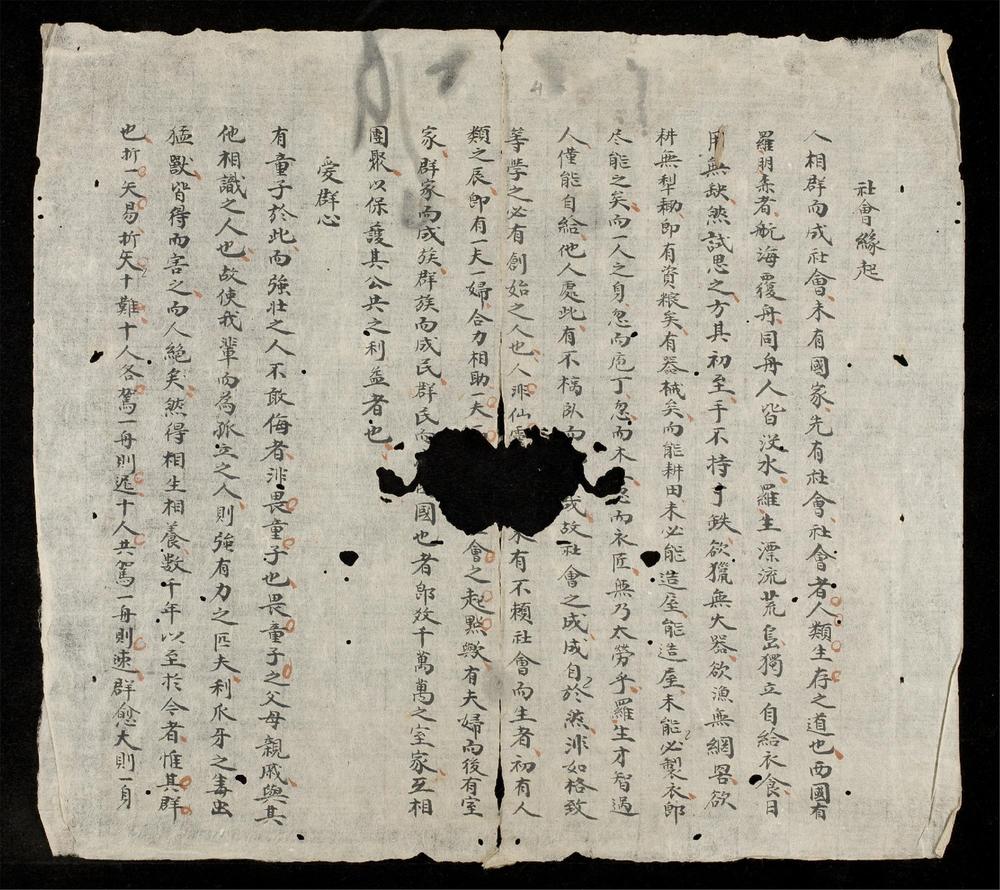 社會緣起
人相群而成社會未有國家先有社會社會者人類生存之道也西國有
羅朋森者航海覆舟同舟人皆没水羅生漂流荒島獨立自給衣食日
用無缺然試思之方其初至手不持寸鉄欲獵無火器欲漁無網罟欲
耕無犁耡即有資粮矣有器械矣而能耕田未必能造屋能造屋未能必製衣郎
尽能之矣而一人之身忽而庖丁忽而木忽而衣匠無乃太勞乎羅生才智過
人僅能自給他人處此有不槁臥而或故社會之成成自於然非如格致
等學之必有創始之人也人非仙未有不賴社會而生者初有人
類之辰即有一夫一婦合力相助一夫一會之起點歟有夫婦而後有室
家群家而成族群族而成民群民而國也者郎效千萬萬之室家互相
團聚以保護其公共之利益者也
受群心
有童子於此而強壯之人不敢侮者非畏童子也畏童子之父母親戚與其
他相識之人也故使我輩而為孤立之人則強有力之匹夫利爪牙之毒出
猛獸皆得而害之而人絕矣然得相生相養数千年以至於今者惟其群
也折一矢易折矢十難十人各駕一舟則迟十人共駕一舟則速群愈大則一身